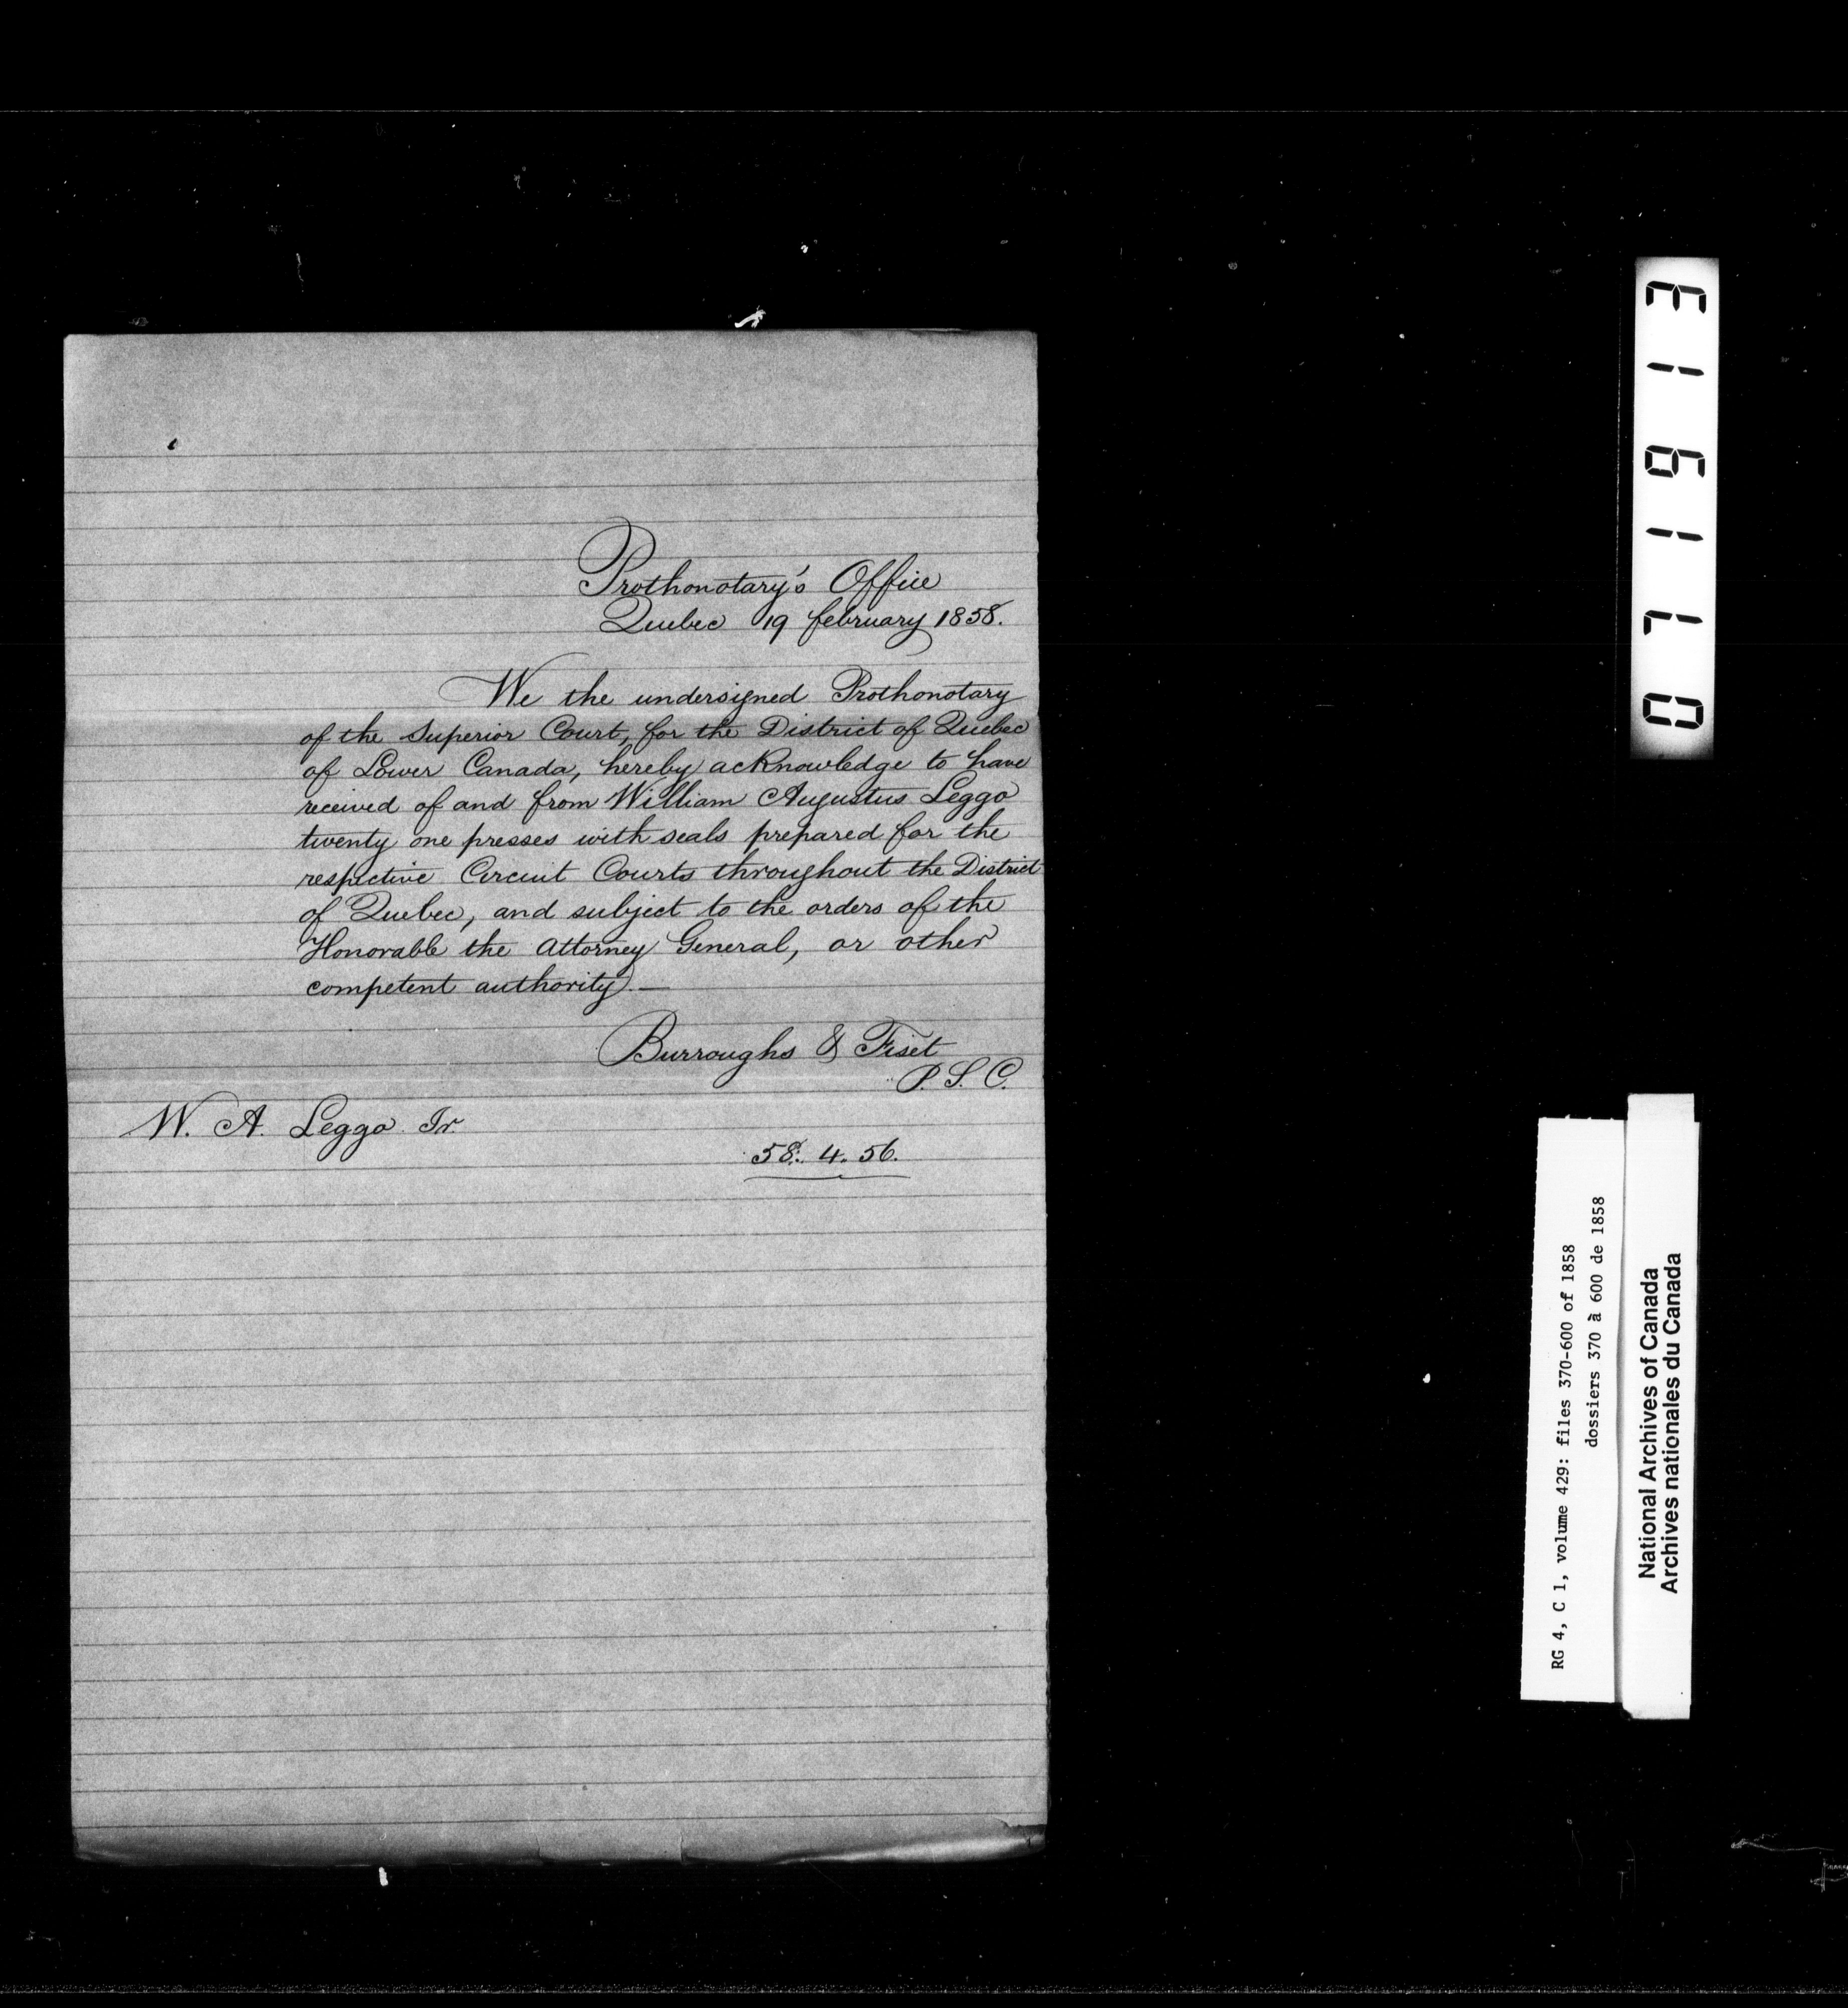 Prothonotary's Office
Quebec 19 february 1858.
We the undersigned Prothonotary
of the Superior Court, for the District of Quebec
of Lower Canada, hereby acknowledge to have
received of and from William Augustus Leggo
twenty one presses with seals prepared for the
respective Circuit Courts throughout the District
of Quebec, and subject to the orders of the
Honorable the Attorney General, or other
competent authority.—
Burroughs & Fiset
P. S. C.
W. A. Leggo Jr.
58. 4. 56.
071613
RG 4, C 1, volume 429: files 370-600 of 1858
dossiers 370 à 600 de 1858
National Archives of Canada
Archives nationales du Canada